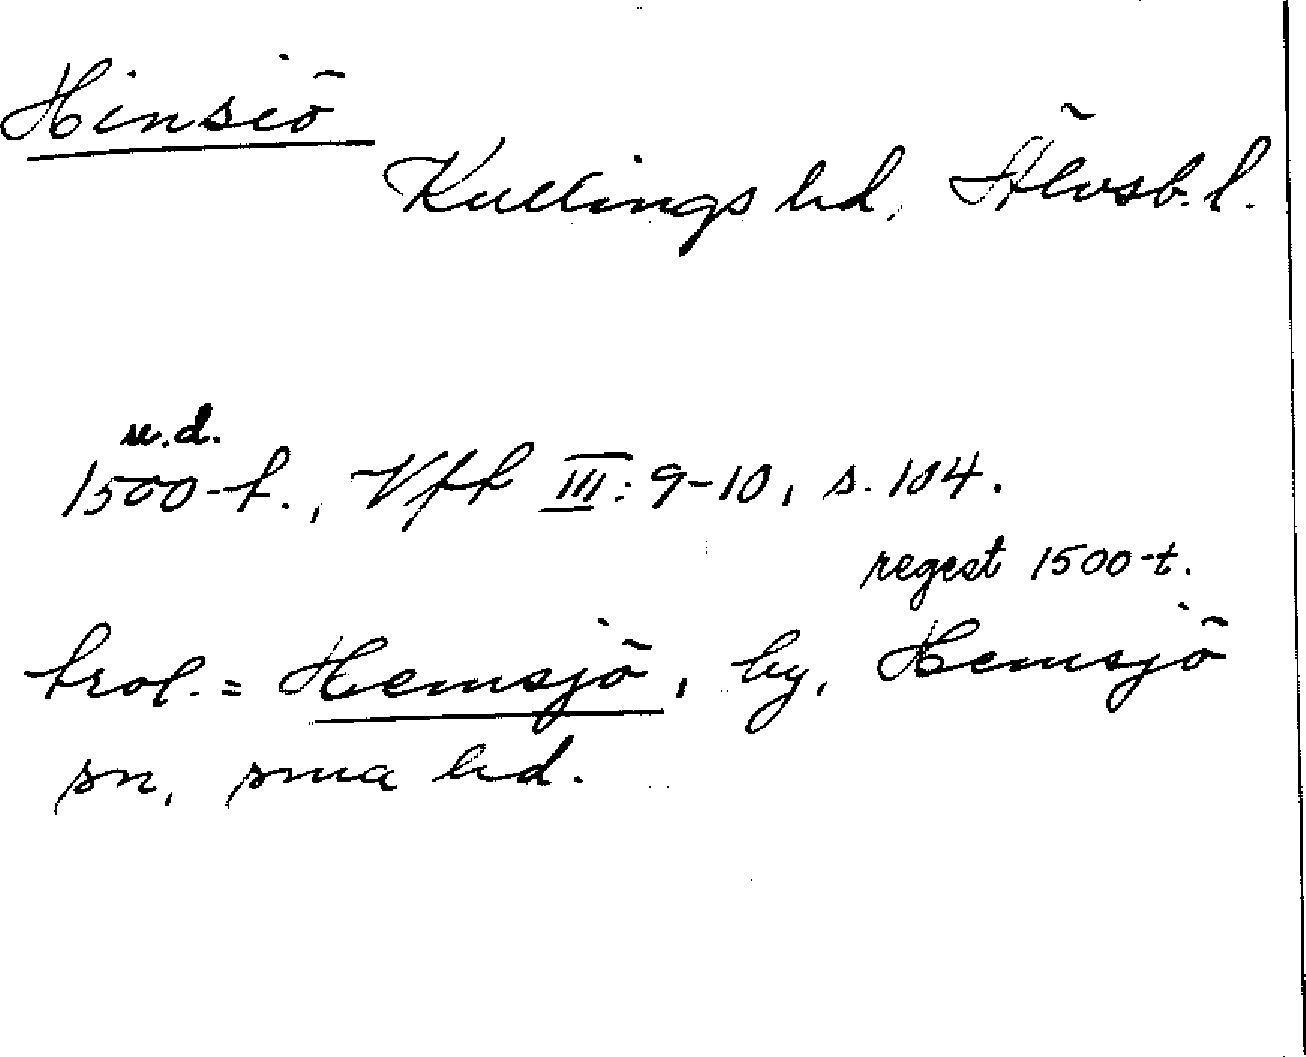 Hinsiö
Kullings hd, Älvsb. l.
u.d.
1500-t., Vfft III: 9-10, s. 104.
regest 1500-t.
trol. = Hemsjö, by, Hemsjö
sn, sma hd.